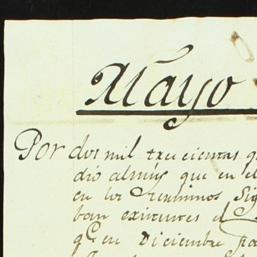 Mayo
Por dos mil trecientas q
dio almug que en el
en los terminos Sig
ban existentes el
q.e en Diciembre pa